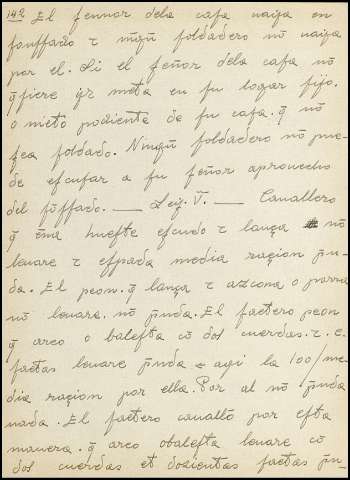 142 El ſennor dela caſa uaỹa en
fonſſado τ nīgū ſoldadero nō uaỹa
por el. Si el ſeñor dela caſa nō
q̄ſiere ỹr meta en ſu logar fijo.
o nieto podiente de ſu caſa. q̄ nō
ſea ſoldado. Ningū ſoldadero nō pue-
de eſcuſar a ſu ſeñor aprouecho
del fōſſado. — Leẏ. V. — Cauallero
q̄ ēna hueſte eſcudo τ lança nō
leuare τ eſpada media racion p̄n-
da. El peon. q̄ lança τ azcona o porra
nō leuare. nō p̄nda. El ſaetero peon
q̄ arco o baleſta cō dos cuerdas. τ. c.
ſaetas leuare p̄nda - aqi la 100/me-
dia racion por ella. Por al nō p̄nda
nada. El ſaetero cauallo por eſta
manera. q̄ arco obaleſta leuare cō
dos cuerdas et dozientas ſaetas p̄n-